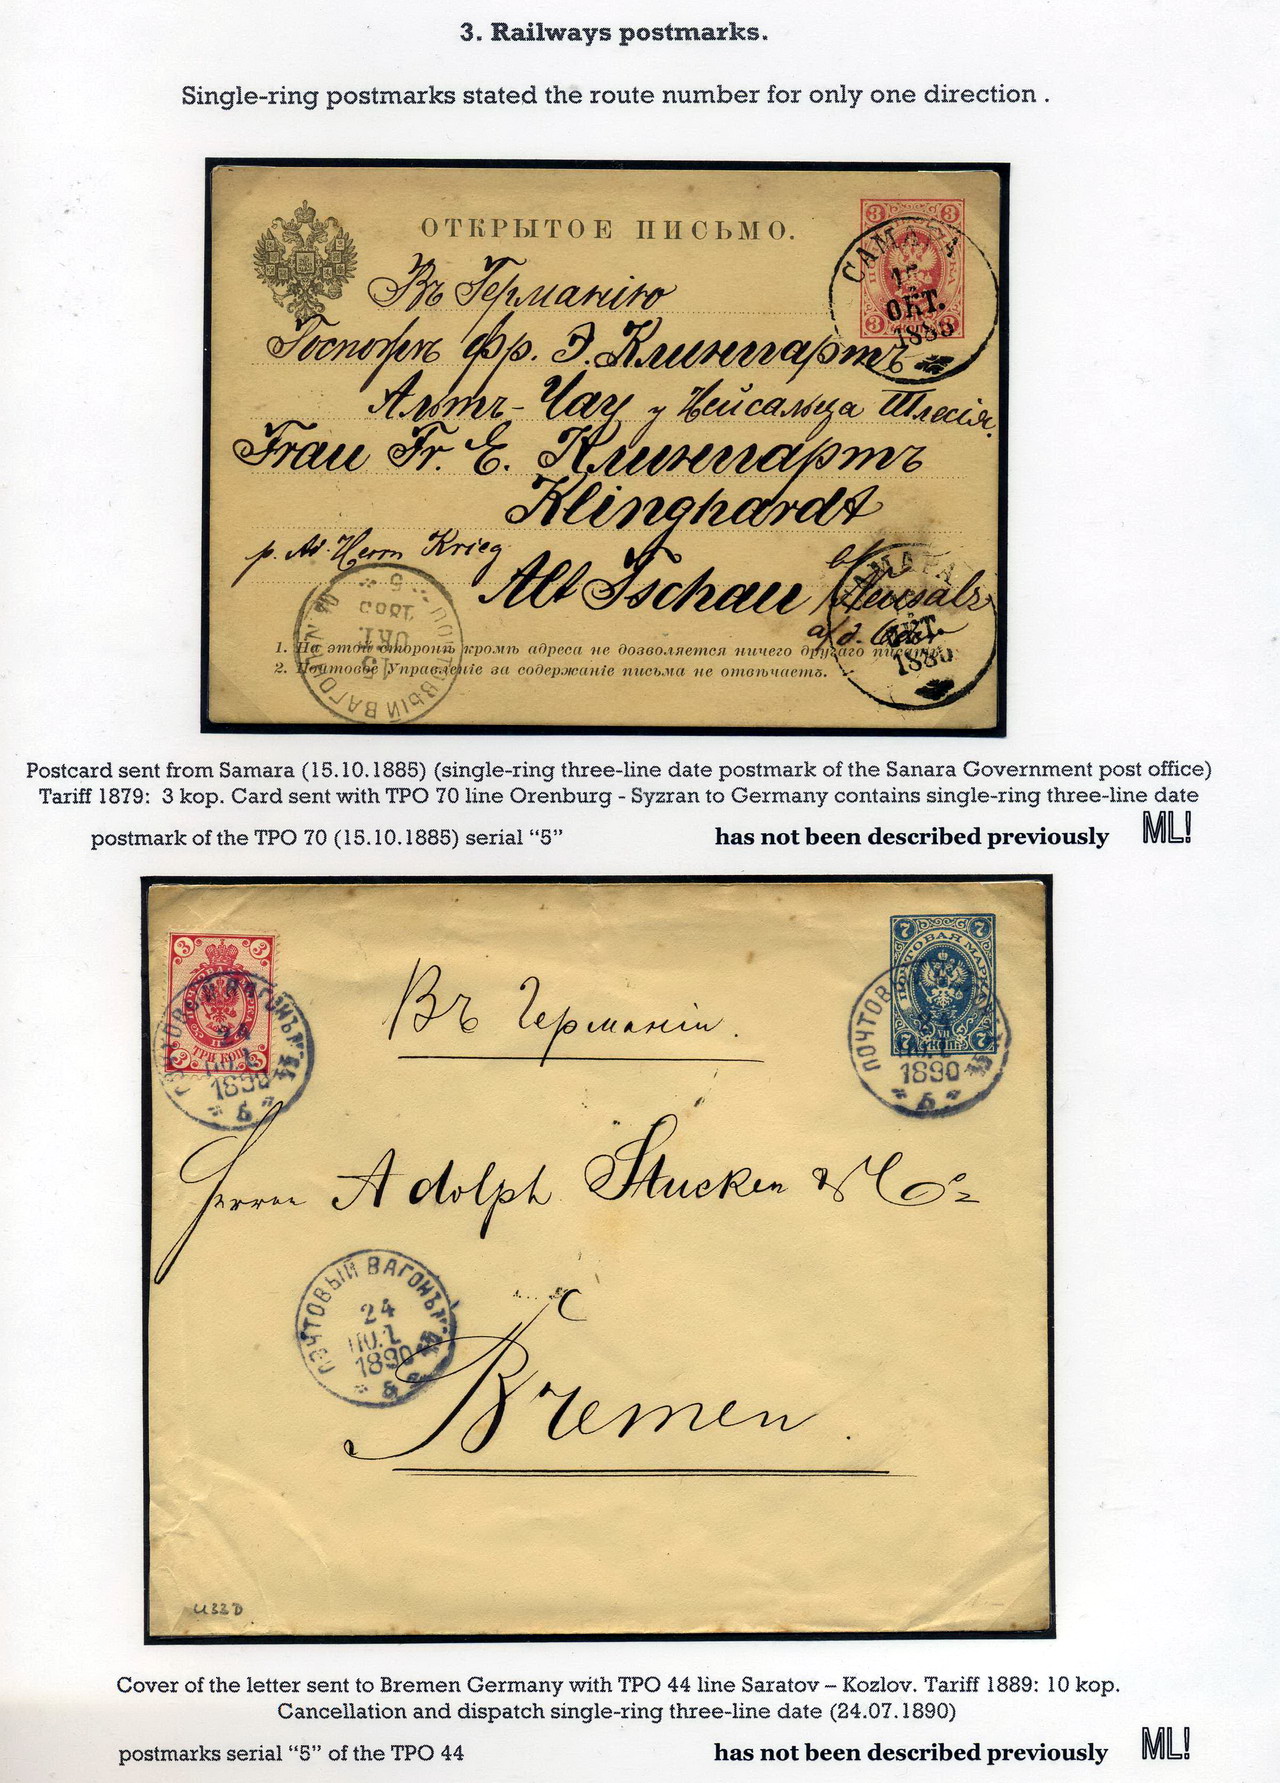 3. Railways postmarks.
Single-ring postmarks stated the route number for only one direction .
ОТКРЫТОЕ ПИСЬМО.
3 3
САМАРА
15
ОКТ.
1885
3 3
Въ Германію
Госпожѣ Фр. Э. Клингартъ
Альтъ-Чау у Нейсальца Шлесія.
Frau Fr. E. Клингартъ
Klinghardt
p. Ad. Herrn Krieg
Alt Tschau b/ Neusalz
a/d. Oder
САМАРА
ОКТ.
1885
ПОЧТОВЫЙ ВАГОНЪ
15
ОКТ.
1885
5
1. На этой сторонѣ кромѣ адреса не дозволяется ничего другаго писать.
2. Почтовое Управленіе за содержаніе письма не отвѣчаетъ.
Postcard sent from Samara (15.10.1885) (single-ring three-line date postmark of the Sanara Government post office)
Tariff 1879: 3 kop. Card sent with TPO 70 line Orenburg - Syzran to Germany contains single-ring three-line date
postmark of the TPO 70 (15.10.1885) serial “5”
has not been described previously ML!
3 3
3 ТРИ КОП. 3
ПОЧТОВЫЙ ВАГОНЪ
24
ІЮЛ
1890
5
7 7
ПОЧТОВАЯ МАРКА
7 VII КОП. 7
ПОЧТОВЫЙ
24
ІЮЛ
1890
5
Въ Германіи.
Herren Adolph Stucken & Co
ПОЧТОВЫЙ ВАГОНЪ №
24
ІЮЛ
1890
5
Bremen.
U33D
Cover of the letter sent to Bremen Germany with TPO 44 line Saratov – Kozlov. Tariff 1889: 10 kop.
Cancellation and dispatch single-ring three-line date (24.07.1890)
postmarks serial “5” of the TPO 44
has not been described previously ML!